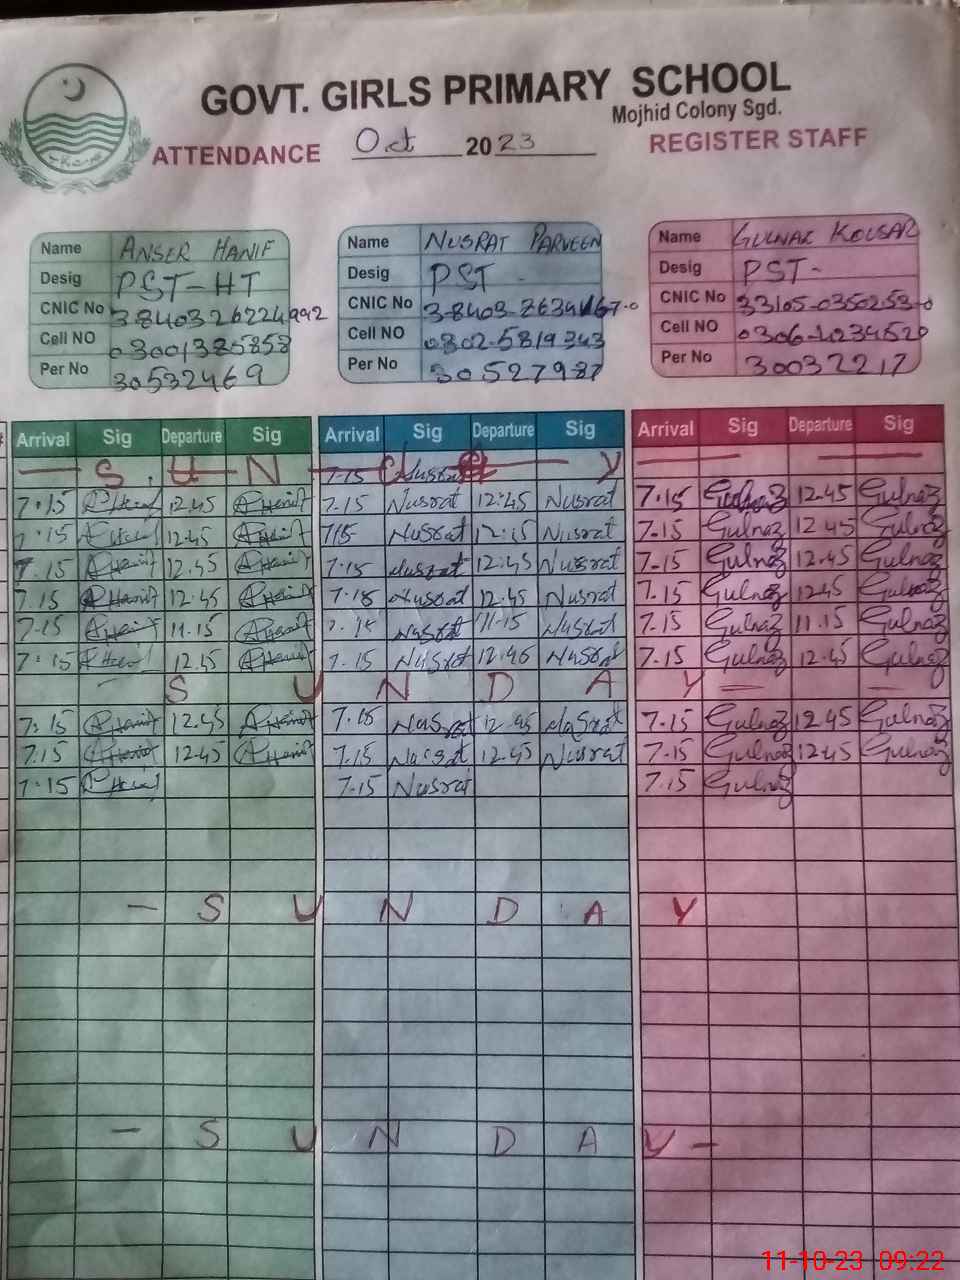 GOVT. GIRLS PRIMARY SCHOOL
Mojhid Colony Sgd.
ATTENDANCE Oct 2023 REGISTER STAFF
Name ANSER HANIF
Desig PST-HT
CNIC No
Cell NO
Per No 30532469
Name NUSRAT PARVEEN
Desig PST -
CNIC No
Cell NO 0302-5819343
Per No 30527987
Name GULNAZ KOUSAR
Desig PST-
CNIC No 33105-0350253-0
Cell NO 0306-1034520
Per No 30032217
Arrival Sig Departure Sig Arrival Sig Departure Sig Arrival Sig Departure Sig
S U N 7-15 Nusrat Y
7:15 AHanif 12.45 AHanif 7-15 Nusrat 12:45 Nusrat 7.15 Gulnaz 12.45 Gulnaz
7:15 AHanif 12.45 AHanif 715 Nusrat Nusrat 7-15 Gulnaz 12.45 Gulnaz
7.15 AHanif 12.45 AHanif 7.15 Nusrat 12:45 Nusrat 7-15 Gulnaz 12.45 Gulnaz
7.15 AHanif 12.45 AHanif 7.15 Nusrat 12.45 Nusrat 7.15 Gulnaz 12.45 Gulnaz
7.15 AHanif 11.15 AHanif 7.15 Nusrat 11-15 Nusrat 7.15 Gulnaz 11.15 Gulnaz
7:15 AHanif 12.45 AHanif 7.15 Nusrat Nusrat 7.15 Gulnaz 12.45 Gulnaz
- S U N D A Y - -
7:15 AHanif 12.45 AHanif 7.15 Nusrat 12.45 Nusrat 7.15 Gulnaz 12.45 Gulnaz
7.15 AHanif 12.45 AHanif 7.15 Nusrat 12.45 Nusrat 7-15 Gulnaz 12.45 Gulnaz
7:15 AHanif 7.15 Nusrat 7.15 Gulnaz
- S U N D A Y
- S U N D A Y -
11-10-23 09:22